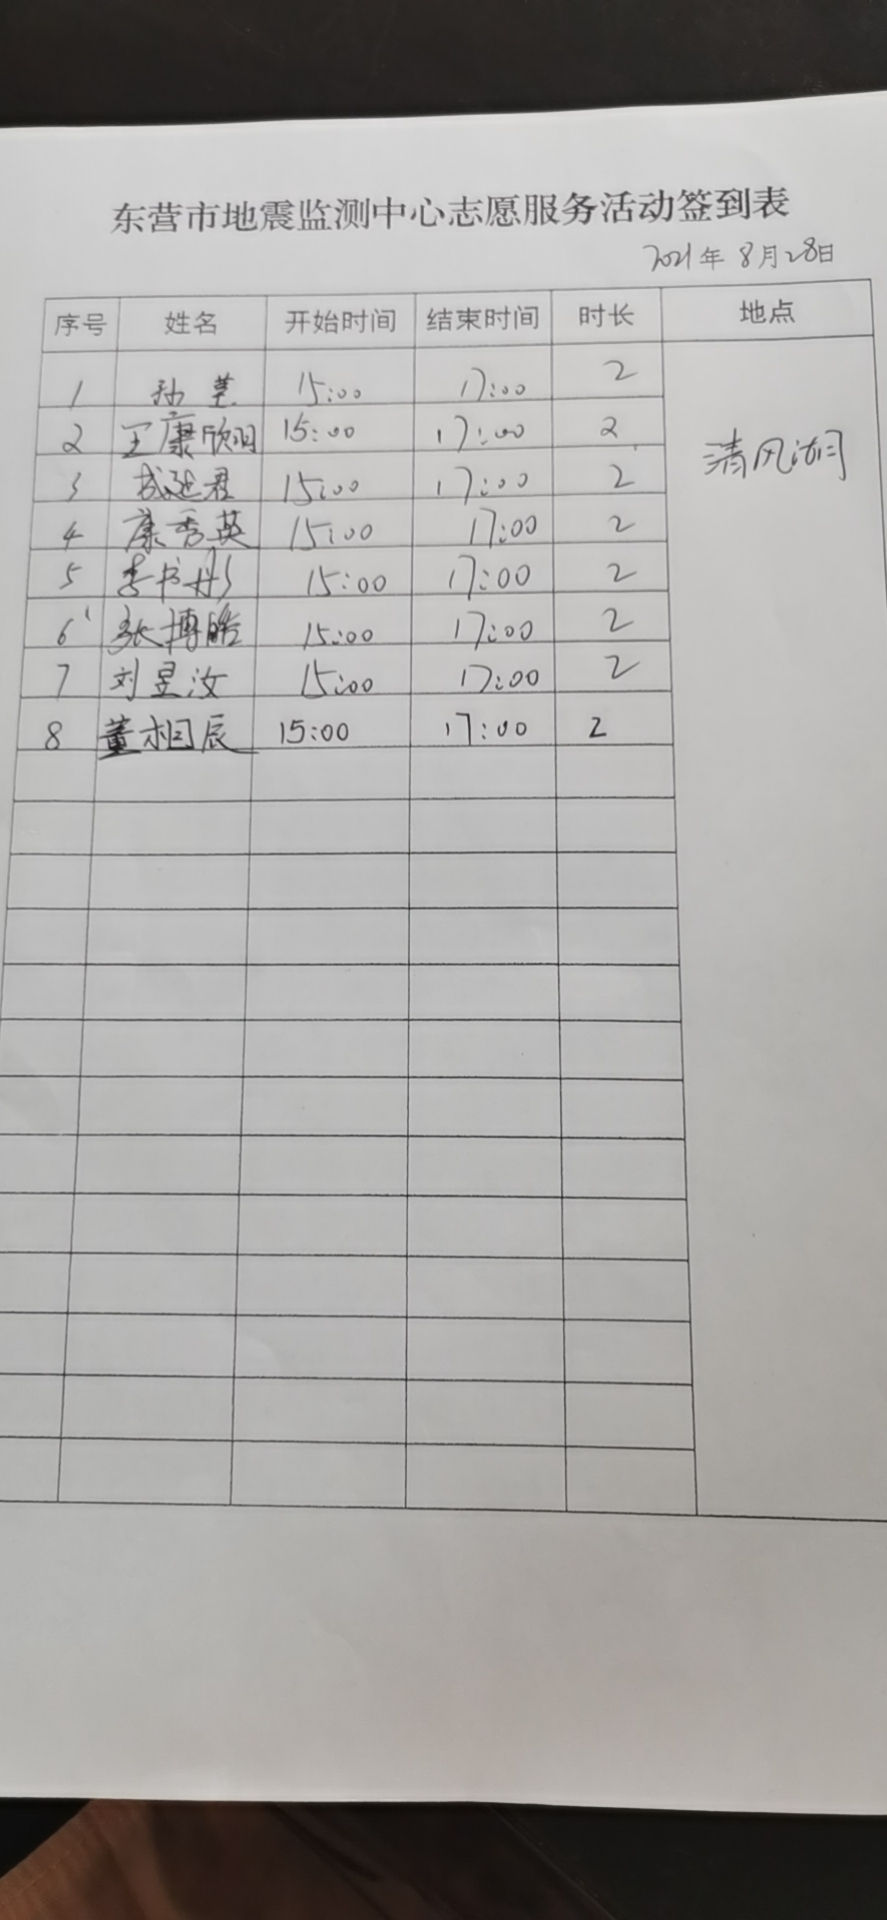 东营市地震监测中心志愿服务活动签到表
2021年 8月28日
序号 姓名 开始时间 结束时间 时长 地点
1 孙 15:00 17:00 2
2 王康欣玥 15:00 17:00 2
清风湖
3 成延君 15:00 17:00 2
4 康秀英 15:00 17:00 2
5 李书彤 15:00 17:00 2
6 张博皓 15:00 17:00 2
7 刘昱汝 15:00 17:00 2
8 董相辰 15:00 17:00 2